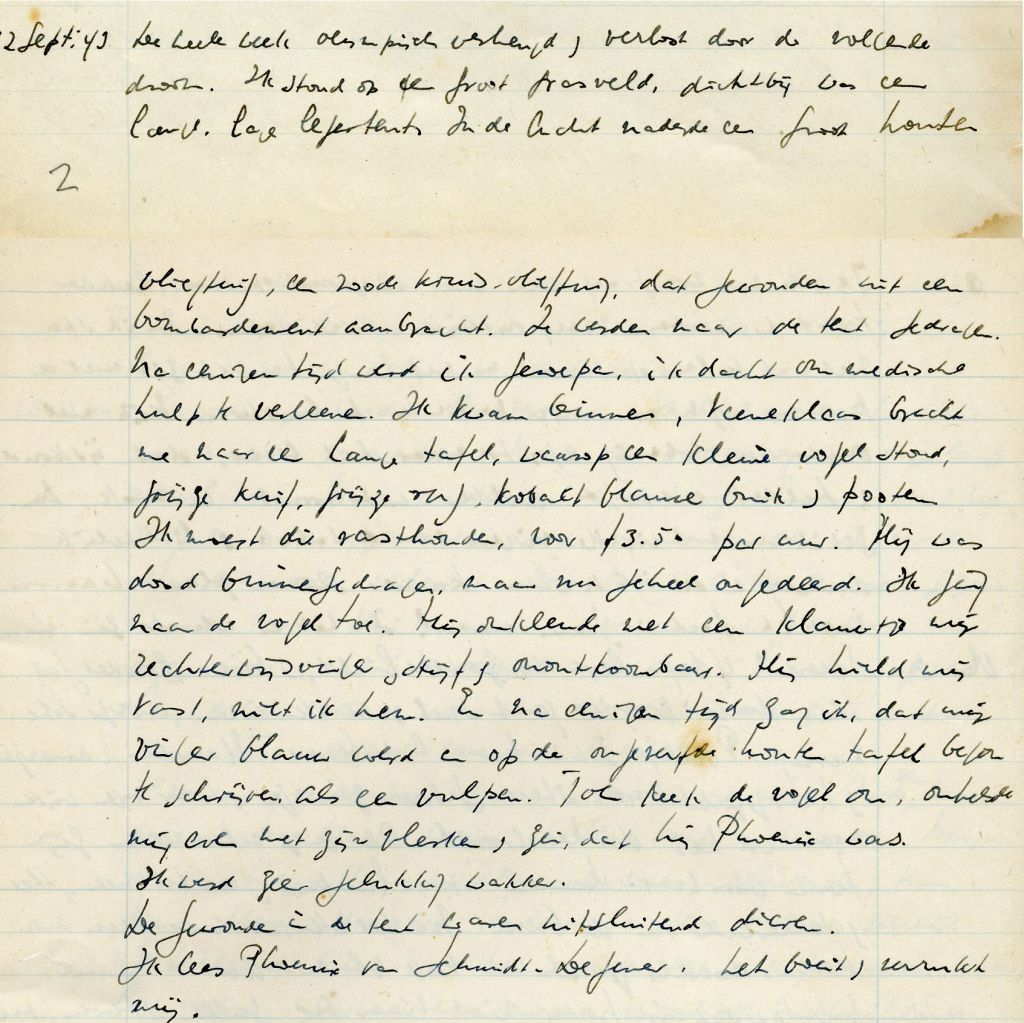 2 Sept. 43 De heele week olympisch verheugd & verlost door de volgende
droom. Ik stond op een groot grasveld, dichtbij was een
lange, lage legertent. In de lucht naderde een groot houten
2
vliegtuig, een roode kruis-vliegtuig, dat gewonden uit een
bombardement aanbracht. Ze werden naar de tent gedragen.
Na eenigen tijd werd ik geroepen, ik dacht om medische
hulp te verleenen. Ik kwam binnen, bracht
me naar een lange tafel, waarop een kleine vogel stond,
grijze kuif, grijze rug, kobalt blauwe buik & pooten
Ik moest die vasthouden, voor f3.50 per uur. Hij was
dood binnengedragen, maar nu geheel ongedeerd. Ik ging
naar de vogel toe. Hij omklemde met een klauwtje mijn
rechterwijsvinger, stijf & onontkoombaar. Hij hield mij
vast, niet ik hem. En na eenigen tijd zag ik, dat mijn
vinger blauw werd en op de ongeverfde houten tafel begon
te schrijven als een vulpen. Toen keek de vogel om, omhelsde
mij even met zijn vlerken & zei, dat hij Phoenix was.
Ik werd zeer gelukkig wakker.
De gewonden in de tent waren uitsluitend dieren.
Ik lees Phoenix van Schmidt-Degener. Het boeit & verrukt
mij.